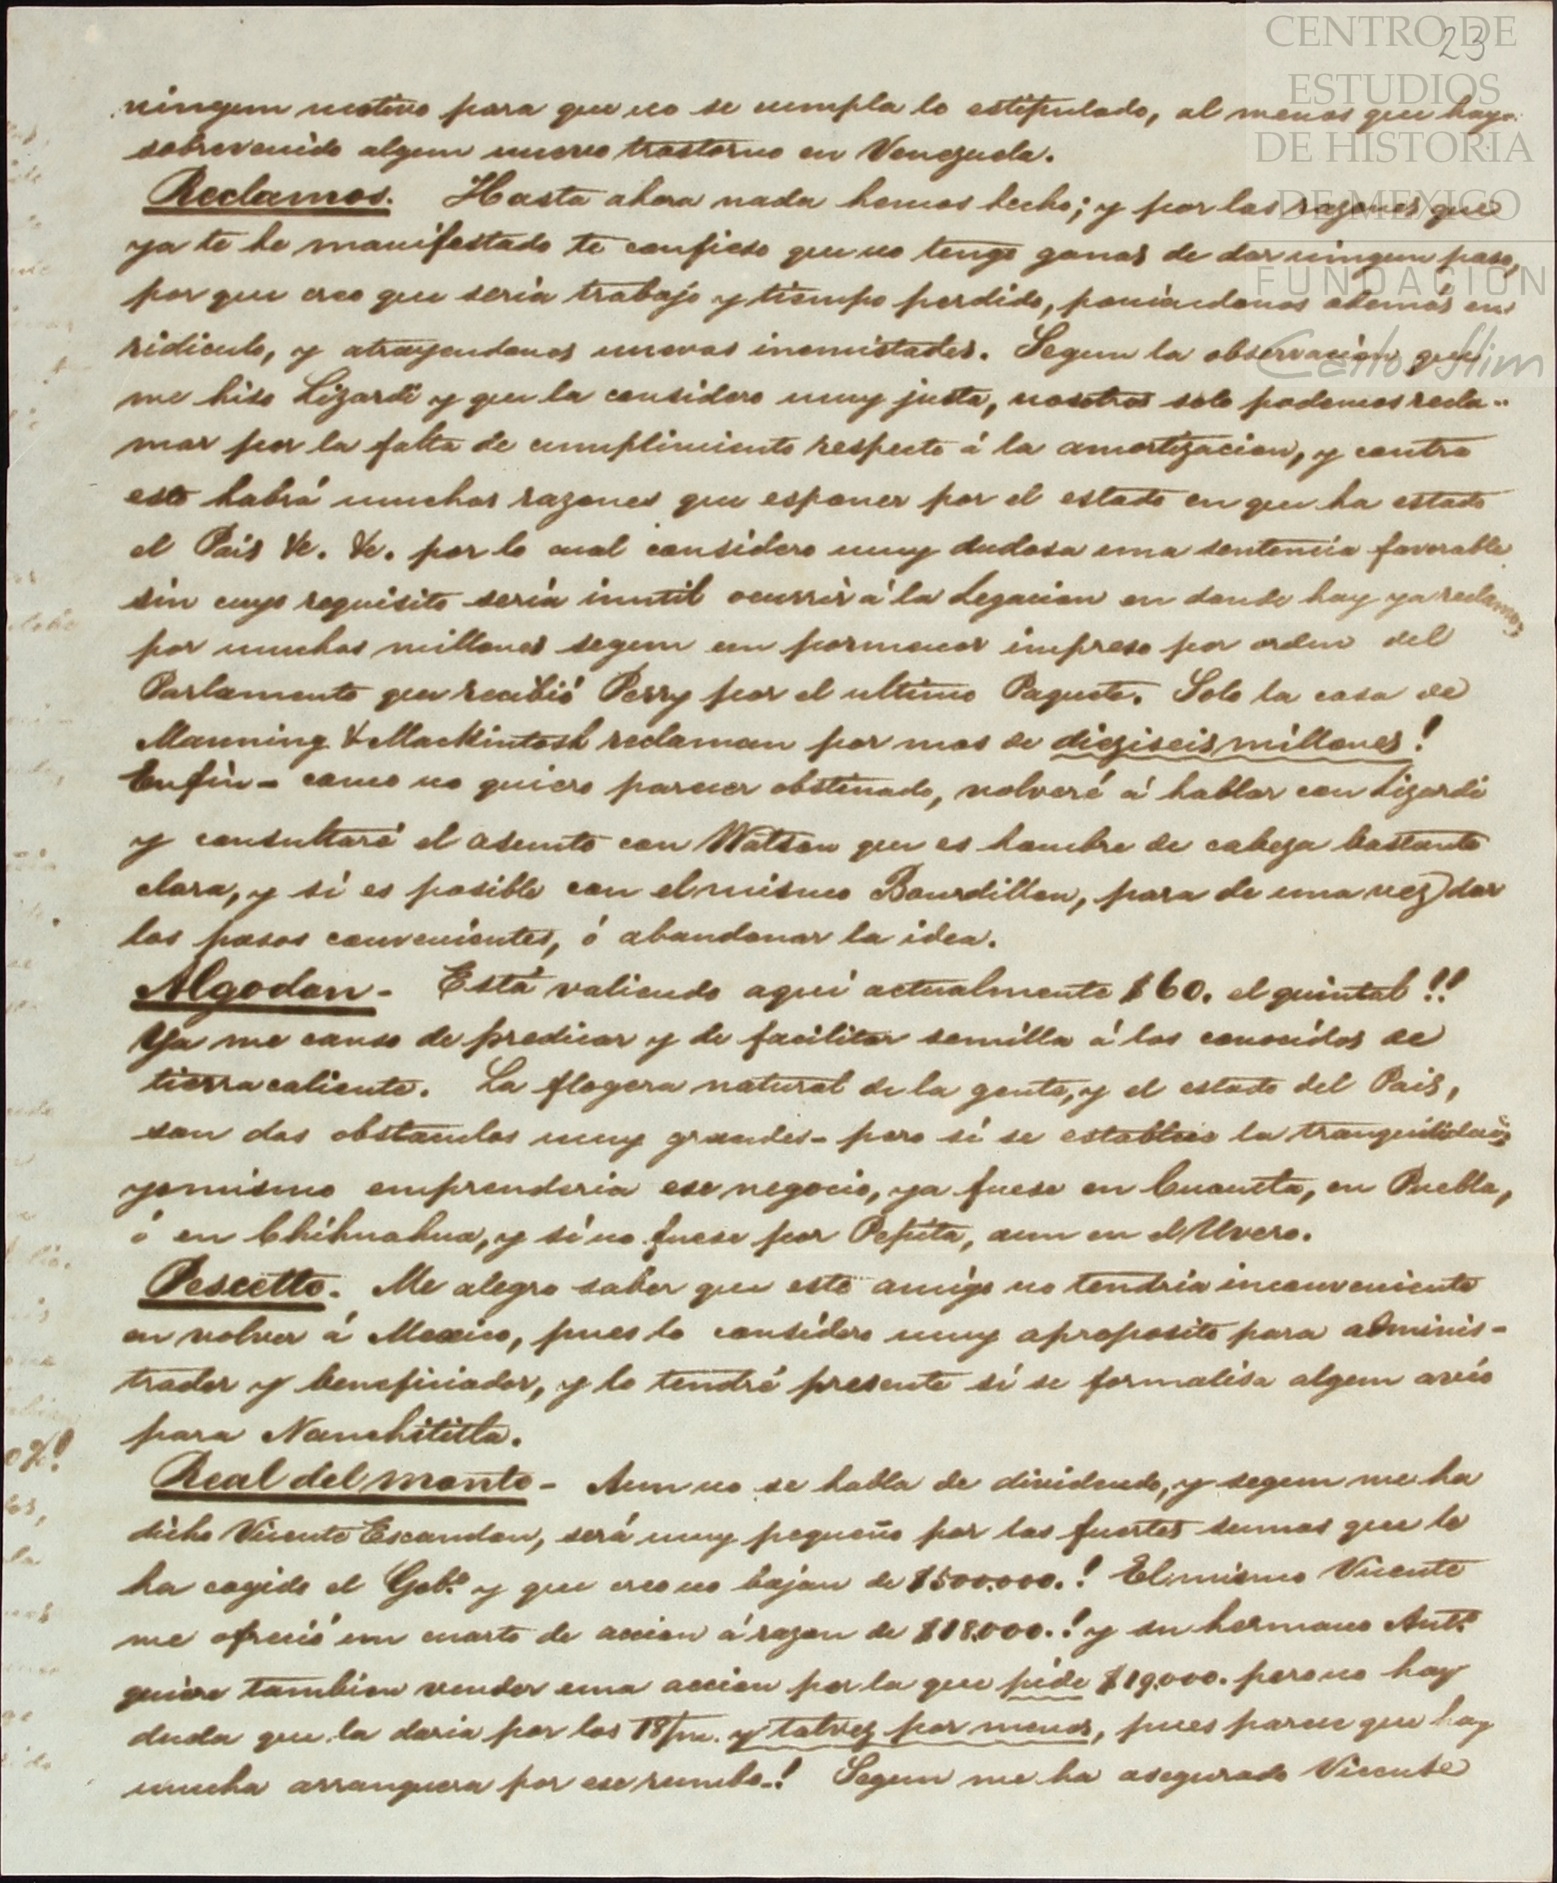 CENTRO DE
ESTUDIOS
DE HISTORIA
DE MEXICO
FUNDACIÓN
Carlos Slim
23
ningun motivo para que no se cumpla lo estipulado, al menos que haya
sobrevenido algun nuevo trastorno en Venezuela.
Reclamos. Hasta ahora nada hemos hecho; y por las razones que
ya te he manifestado te confieso que no tengo ganas de dar ningun paso,
por que creo que seria trabajo y tiempo perdido, poniendonos ademas en
ridiculo, y atrayendonos nuevas inemistades. Segun la observacion que
me hiso Lizardi y que la considero muy justa, nosotros solo podemos recla-
mar por la falta de cumplimiento respecto á la amortizacion, y contra
esto habrá muchas razones que esponer por el estado en que ha estado
el Pais &c. &c. por lo cual considero muy dudosa una sentencia favorable
sin cuyo requisito sería inutil ocurrir á la Legacion en donde hay ya reclamos
por muchos millones segun un pormenor impreso por orden del
Parlamento que recibió Perry por el ultimo Paquete. Solo la casa de
Manning & Mackintosh reclaman por mas de dieziseis millones!
En fin - como no quiero parecer obstinado, volveré á hablar con Lizardi
y consultaré el asunto con Watson que es hombre de cabeza bastante
clara, y si es posible con el mismo Bourdillon, para de una vez dar
los pasos convenientes, ó abandonar la idea.
Algodon - Está valiendo aquí actualmente $60. el quintal!!
Ya me canso de predicar y de facilitar semilla á los conocidos de
tierra caliente. La flogera natural de la gente, y el estado del Pais,
son dos obstaculos muy grandes - pero si se establece la tranquilidad
yo mismo emprenderia ese negocio, ya fuese en Cuautla, en Puebla,
ó en Chihuahua, y si no fuese por Pepita, aun en el Uvero.
Pescetto. Me alegro saber que este amigo no tendría inconveniente
en volver á Mexico, pues lo considero muy aproposito para adminis-
trador y beneficiador, y lo tendré presente si se formalisa algun avio
para Nanchititla.
Real del monte - Aun no se habla de dividendo, y segun me ha
dicho Vicente Escandon, será muy pequeño por las fuertes sumas que le
ha cogido el Gob.º y que creo no bajan de $500.000.! El mismo Vicente
me ofreció un cuarto de accion á razon de $18.000.! y su hermano Ant.º
quiere tambien vender una accion por la que pide $19.000. pero no hay
duda que la daria por los 18/m. y talvez por menos, pues parece que hay
mucha arranquera por ese rumbo -! Segun me ha asegurado Vicente